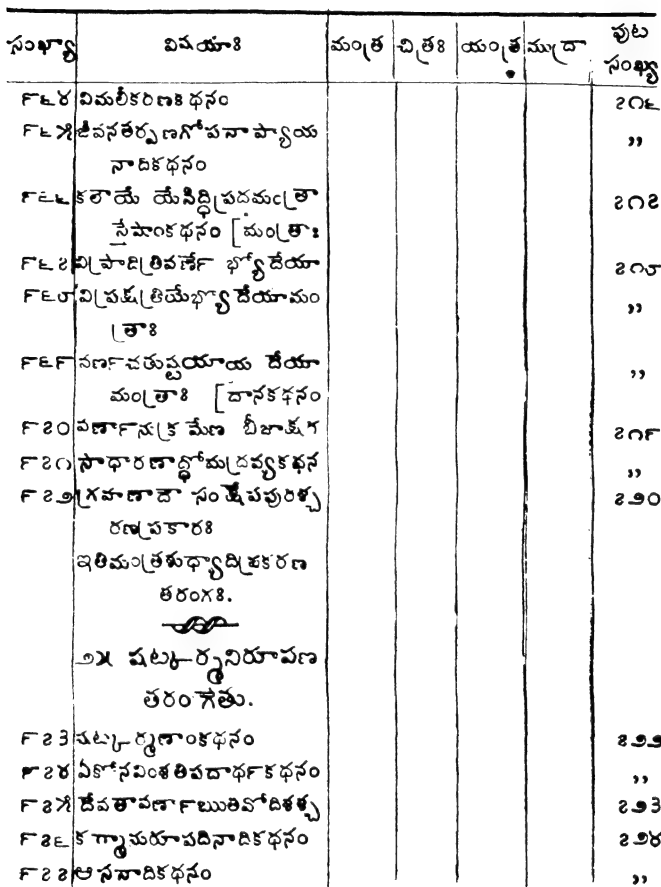 సంఖ్యా విషయాః మంత్ర చిత్రః యంత్ర ముద్రా పుట సంఖ్య
౯౬౪ విమలీకరణకథనం ౭౧౬
౯౬౫ జీవనతర్పణగోపనాప్యాయ ,,
నాదికథనం
౯౬౬ కలౌయే యేసిద్ధిప్రదమంత్రా ౭౧౭
స్తేషాంకథనం [మంత్రాః
౯౬౭ విప్రాదిత్రివర్ణే భ్యోదేయా ౭౧౮
౯౬౮ విప్రక్షత్రియేభ్యోదేయామం ,,
త్రాః
౯౬౯ వర్ణచతుష్టయాయ దేయా ,,
మంత్రాః [దానకథనం
౯౭౦ వర్ణానుక్రమేణ బీజాక్షర ౭౧౯
౯౭౧ సాధారణాద్ధోమద్రవ్యకథన ,,
౯౭౨ గ్రహణాదౌ సంక్షేపపురశ్చ ౭౨౦
రణప్రకారః
ఇతిమంత్రశుధ్యాదిప్రకరణ
తరంగః.
౨౫ షట్కర్మనిరూపణ
తరంగేతు.
౯౭౩ షట్కర్మణాంకథనం ౭౨౨
౯౭౪ ఏకోనవింశతిపదార్థకథనం ,,
౯౭౫ దేవతావర్ణాఋతవోదిశశ్చ ౭౨౩
౯౭౬ కర్మానురూపదినాదికథనం ౭౨౪
౯౭౭ ఆసనాదికథనం ,,